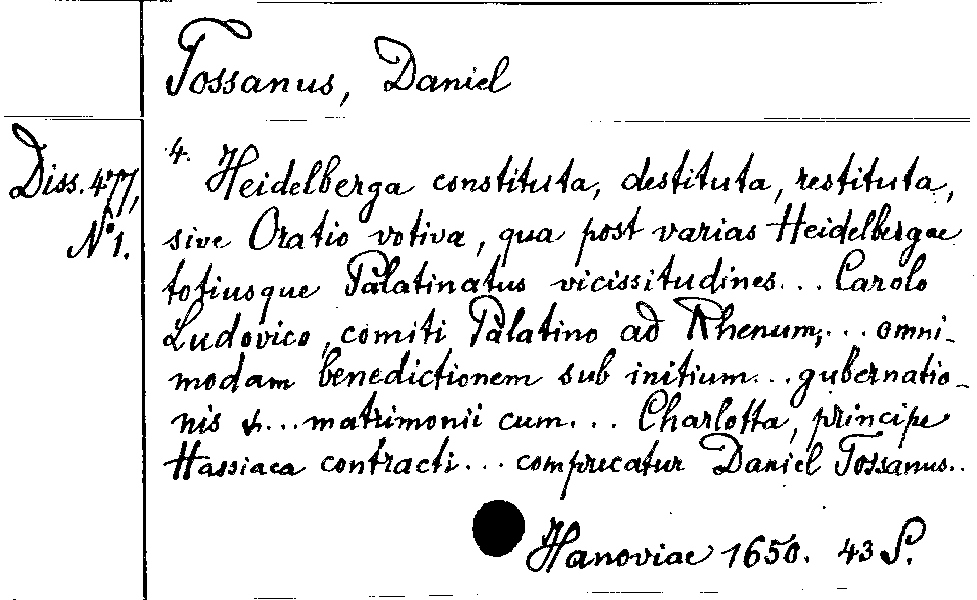 Tossanus, Daniel
Diss. 477,
N° 1.
4. Heidelberga constituta, destituta, restituta,
sive Oratio votiva, qua post varias Heidelbergae
totiusque Palatinatus vicissitudines... Carolo
Ludovico, comiti Palatino ad Rhenum,... omni-
modam benedictionem sub initium... gubernatio-
nis &... matrimonii cum... Charlotta, principe
Hassiaca contracti... comprecatur Daniel Tossanus..
Hanoviae 1650. 43 S.